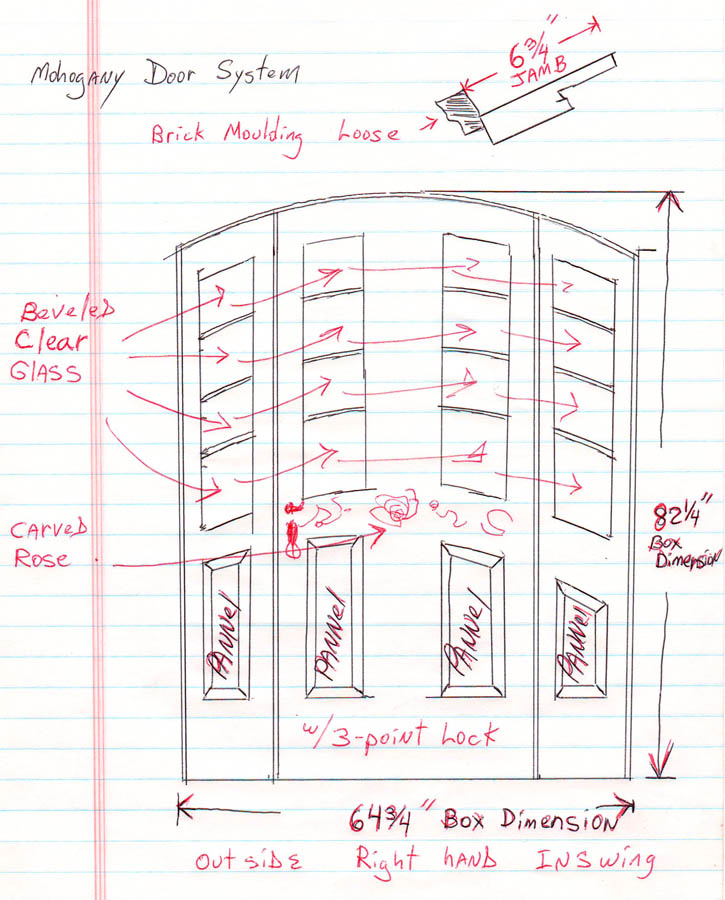 6 3/4"
JAMB
Mohogany Door System
Brick Moulding Loose
Beveled
Clear
GLASS
CARVED
Rose
82 1/4"
Box
Dimension
PANNel
PANNel
PANNel
PANNel
w/3-point Lock
64 3/4" Box Dimension
OutsiDE Right hAND INSwing